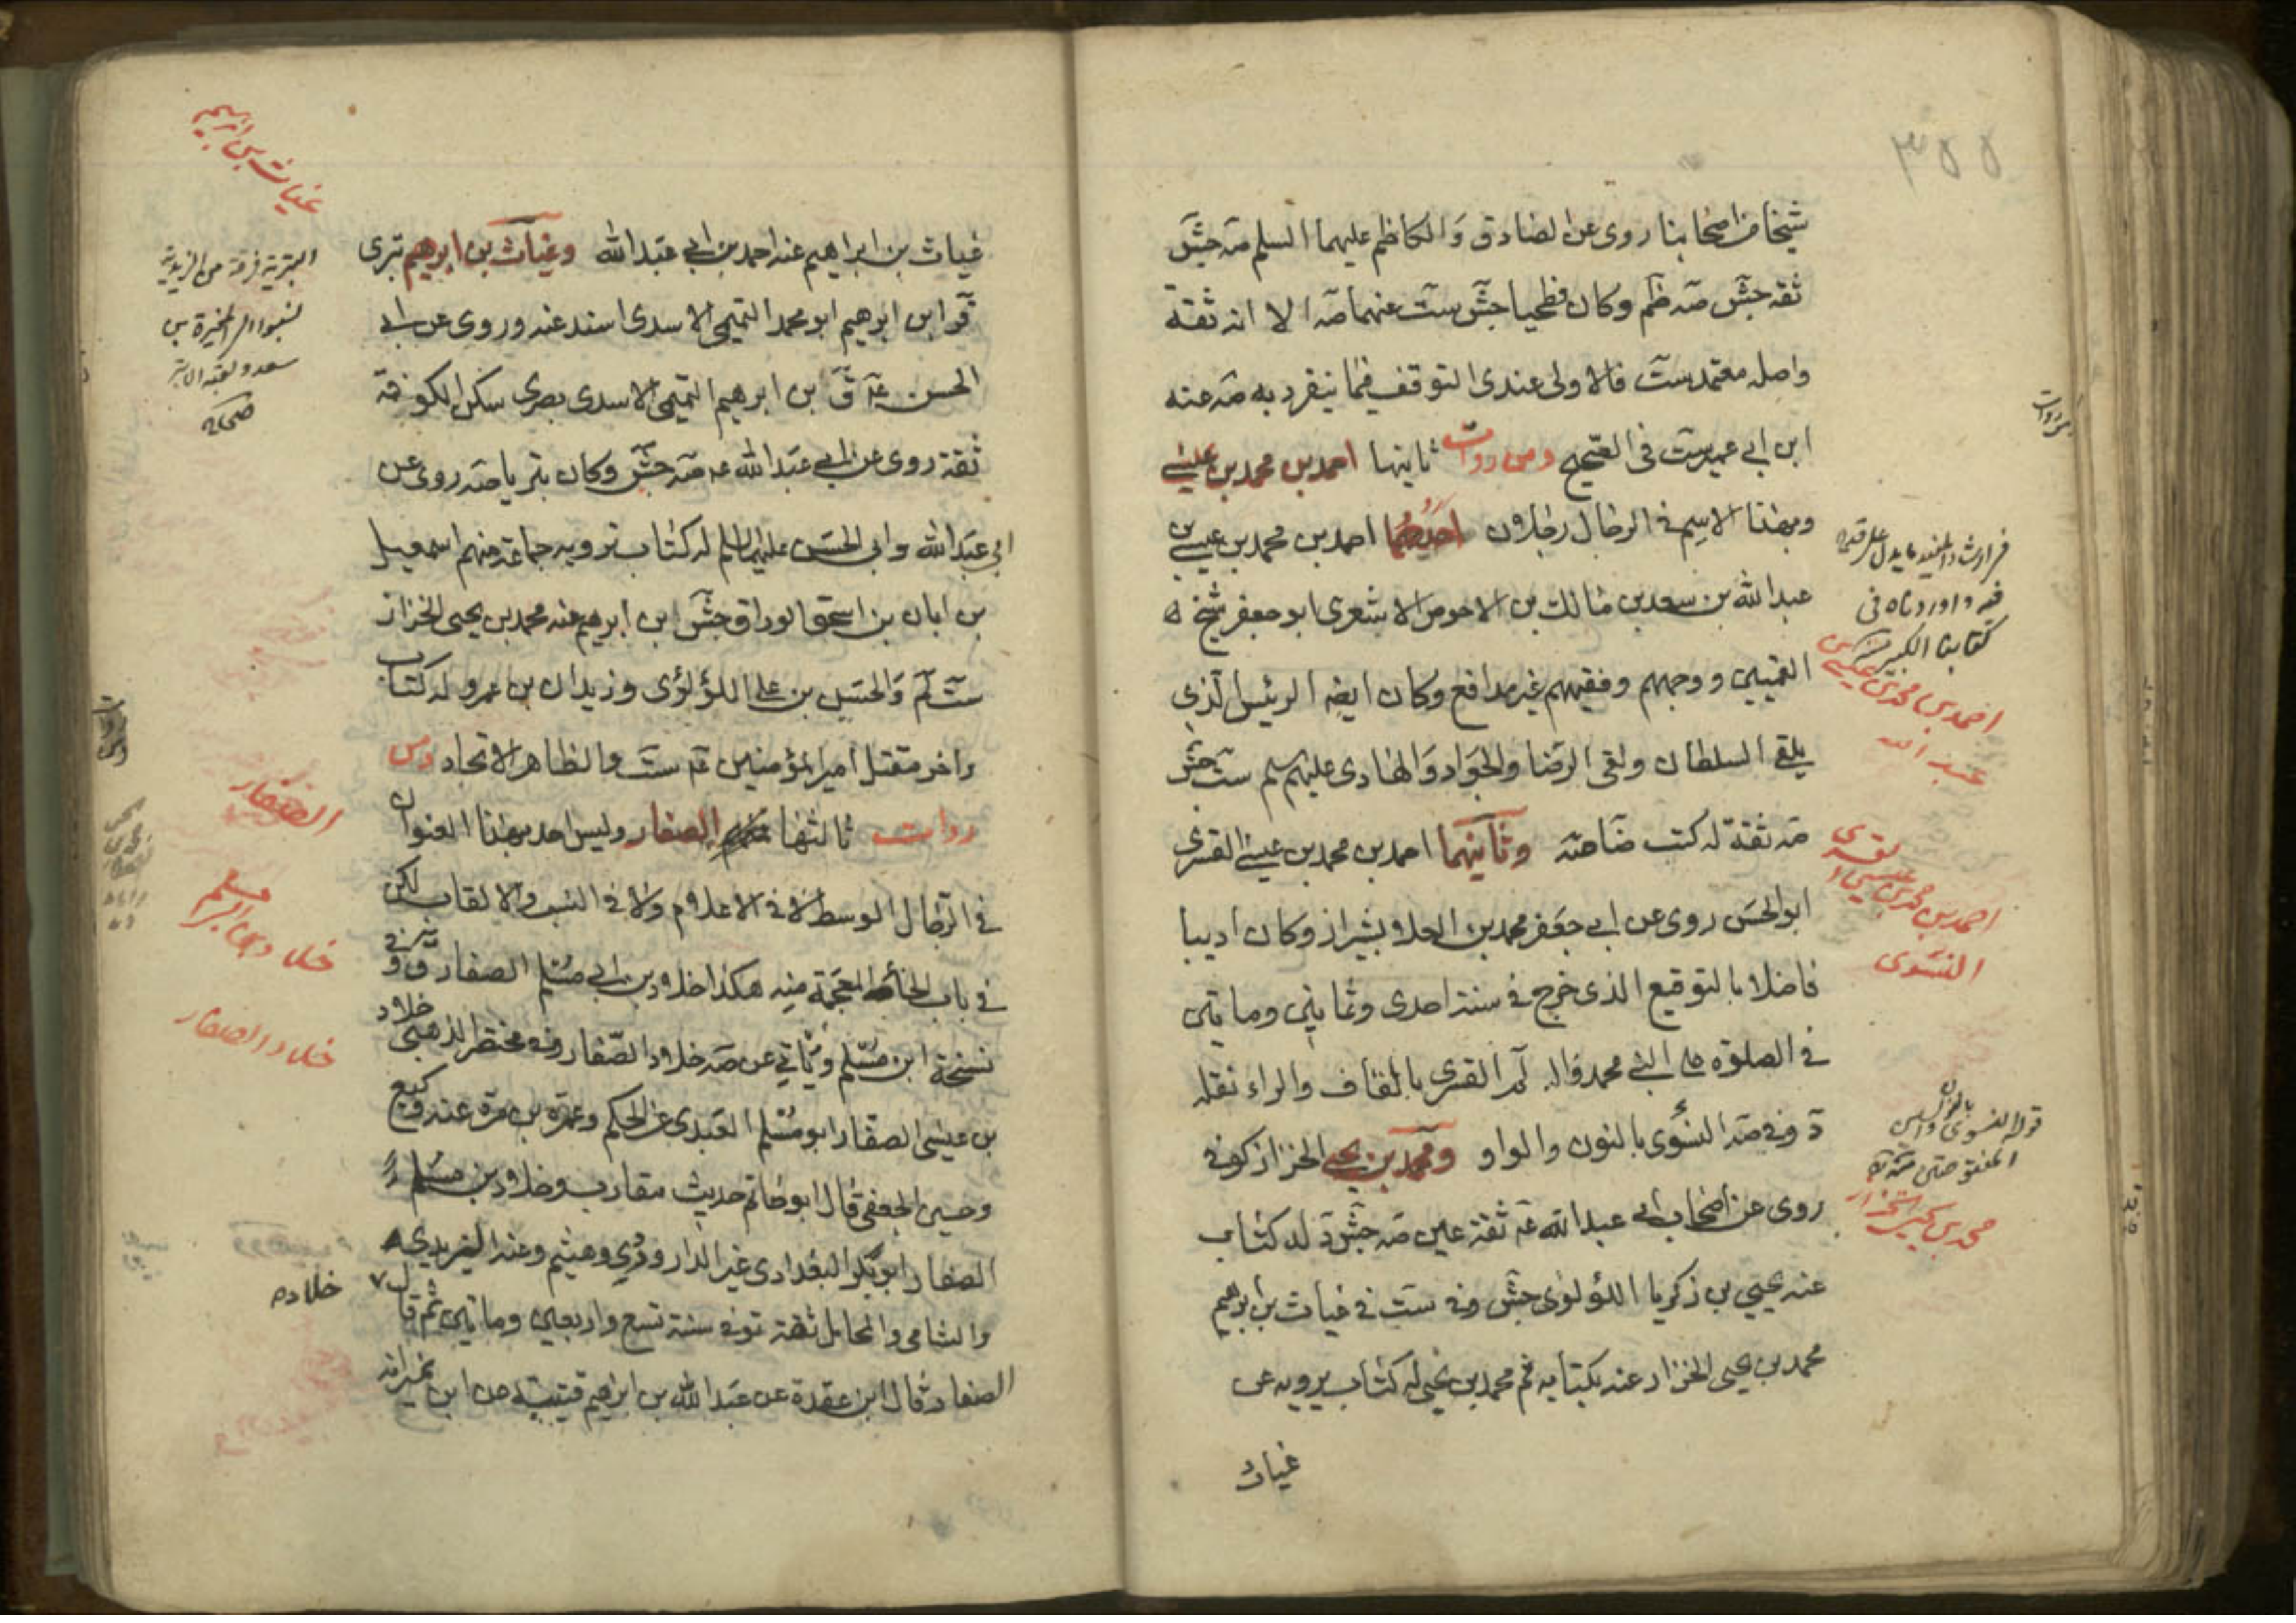 ٣٥٥
شيخا من اصحابنا روى عن الصادق والكاظم عليهما السلم صه جش
ثقه جش صه ظم وكان فطحيا جش ست عنهما صه الا انه ثقة
واصله معتمد ست فالاولى عندى التوقف فيما ينفرد به صه عنه
ابن ابى عمير ست فى الصحيح ومن روات ثانيها احمد بن محمد بن عيسى
وبهذا الاسم فى الرجال رجلان احدهما احمد بن محمد بن عيسى بن
عبد الله بن سعد بن مالك بن الاحوص الاشعرى ابو جعفر شيخ
القميين ووجههم وفقيههم غير مدافع وكان ايضا الرئيس الذى
يلقى السلطان ولقى الرضا والجواد والهادى عليهم سلم ست جش
صه ثقة له كتب ضا صه وثانيهما احمد بن محمد بن عيسى القسرى
ابو الحسن روى عن ابى جعفر محمد بن العلا بشيراز وكان اديبا
فاضلا بالتوقيع الذى خرج فى سنة احدى وثمانين وماتين
فى الصلوة على النبى محمد واله لم القسرى بالقاف والراء نقله
د وفى صه النسوى بالنون والواو ومحمد بن يحيى الخزاز كوفى
روى عن اصحاب ابى عبد الله عم ثقة عين صه جش د له كتاب
عنه يحيى بن زكريا اللؤلوى جش وفى ست فى غياث بن ابرهيم
محمد بن يحيى الخزاز عنه بكتابه ثم محمد بن يحيى له كتاب يرويه عن
غياث
كتابنا الكبير
احمد بن محمد بن عيسى
عبد الله
احمد بن محمد بن عيسى القسرى
النسوى
قوله النسوى بالنون والسين
محمد بن يحيى الخزاز
غياث بن ابراهيم عنه احمد بن ابى عبد الله وغياث بن ابرهيم بترى
قر ابن ابرهيم ابو محمد التميمى الاسدى اسند عنه وروى عن ابى
الحسن عم ق بن ابرهيم التميمى الاسدى بصرى سكن الكوفة
ثقة روى عن ابى عبد الله عم صه جش وكان بتريا صه روى عن
ابى عبد الله وابى الحسن عليهما السلم له كتاب يرويه جماعة منهم اسمعيل
بن ابان بن اسحق الوراق جش ابن ابرهيم عنه محمد بن يحيى الخزاز
ست لم والحسن بن على اللؤلؤى وزيدان بن عمر وله كتاب
واخر مقتل امير المؤمنين عم ست والظاهر الاتحاد ومن
روات ثالثها الصفار وليس احد بهذا العنوان
فى الرجال الوسط لا فى الاعلام ولا فى النسب والالقاب لكن
فى باب الخاء المعجمة منه هكذا خلاد بن ابى مسلم الصفار ق وفى
نسخة ابن مسلم وياتى عن صه خلاد الصفار وفى مختصر الذهبى خلاد
بن عيسى الصفار ابو مسلم العبدى عن الحكم وعمرو بن مرة عنه وكيع
وحسين الجعفى قال ابو حاتم حديثه مقارب وخلاد بن مسلم
الصفار ابو بكر البغدادى عن الدراوردى وهيثم وعنه
والشامى والمحامل ثقة توفى سنة تسع واربعين وماتين ثم قال
الصفار وقال ابن عقدة عن عبد الله بن ابراهيم قتيبة عن ابن نمير انه
غياث بن ابرهيم
البترية فرقة من الزيدية
نسبوا الى المغيرة بن
سعد ولقبه الابتر
صحاح
الصفار
خلاد بن ابى مسلم
خلاد الصفار
خلاد